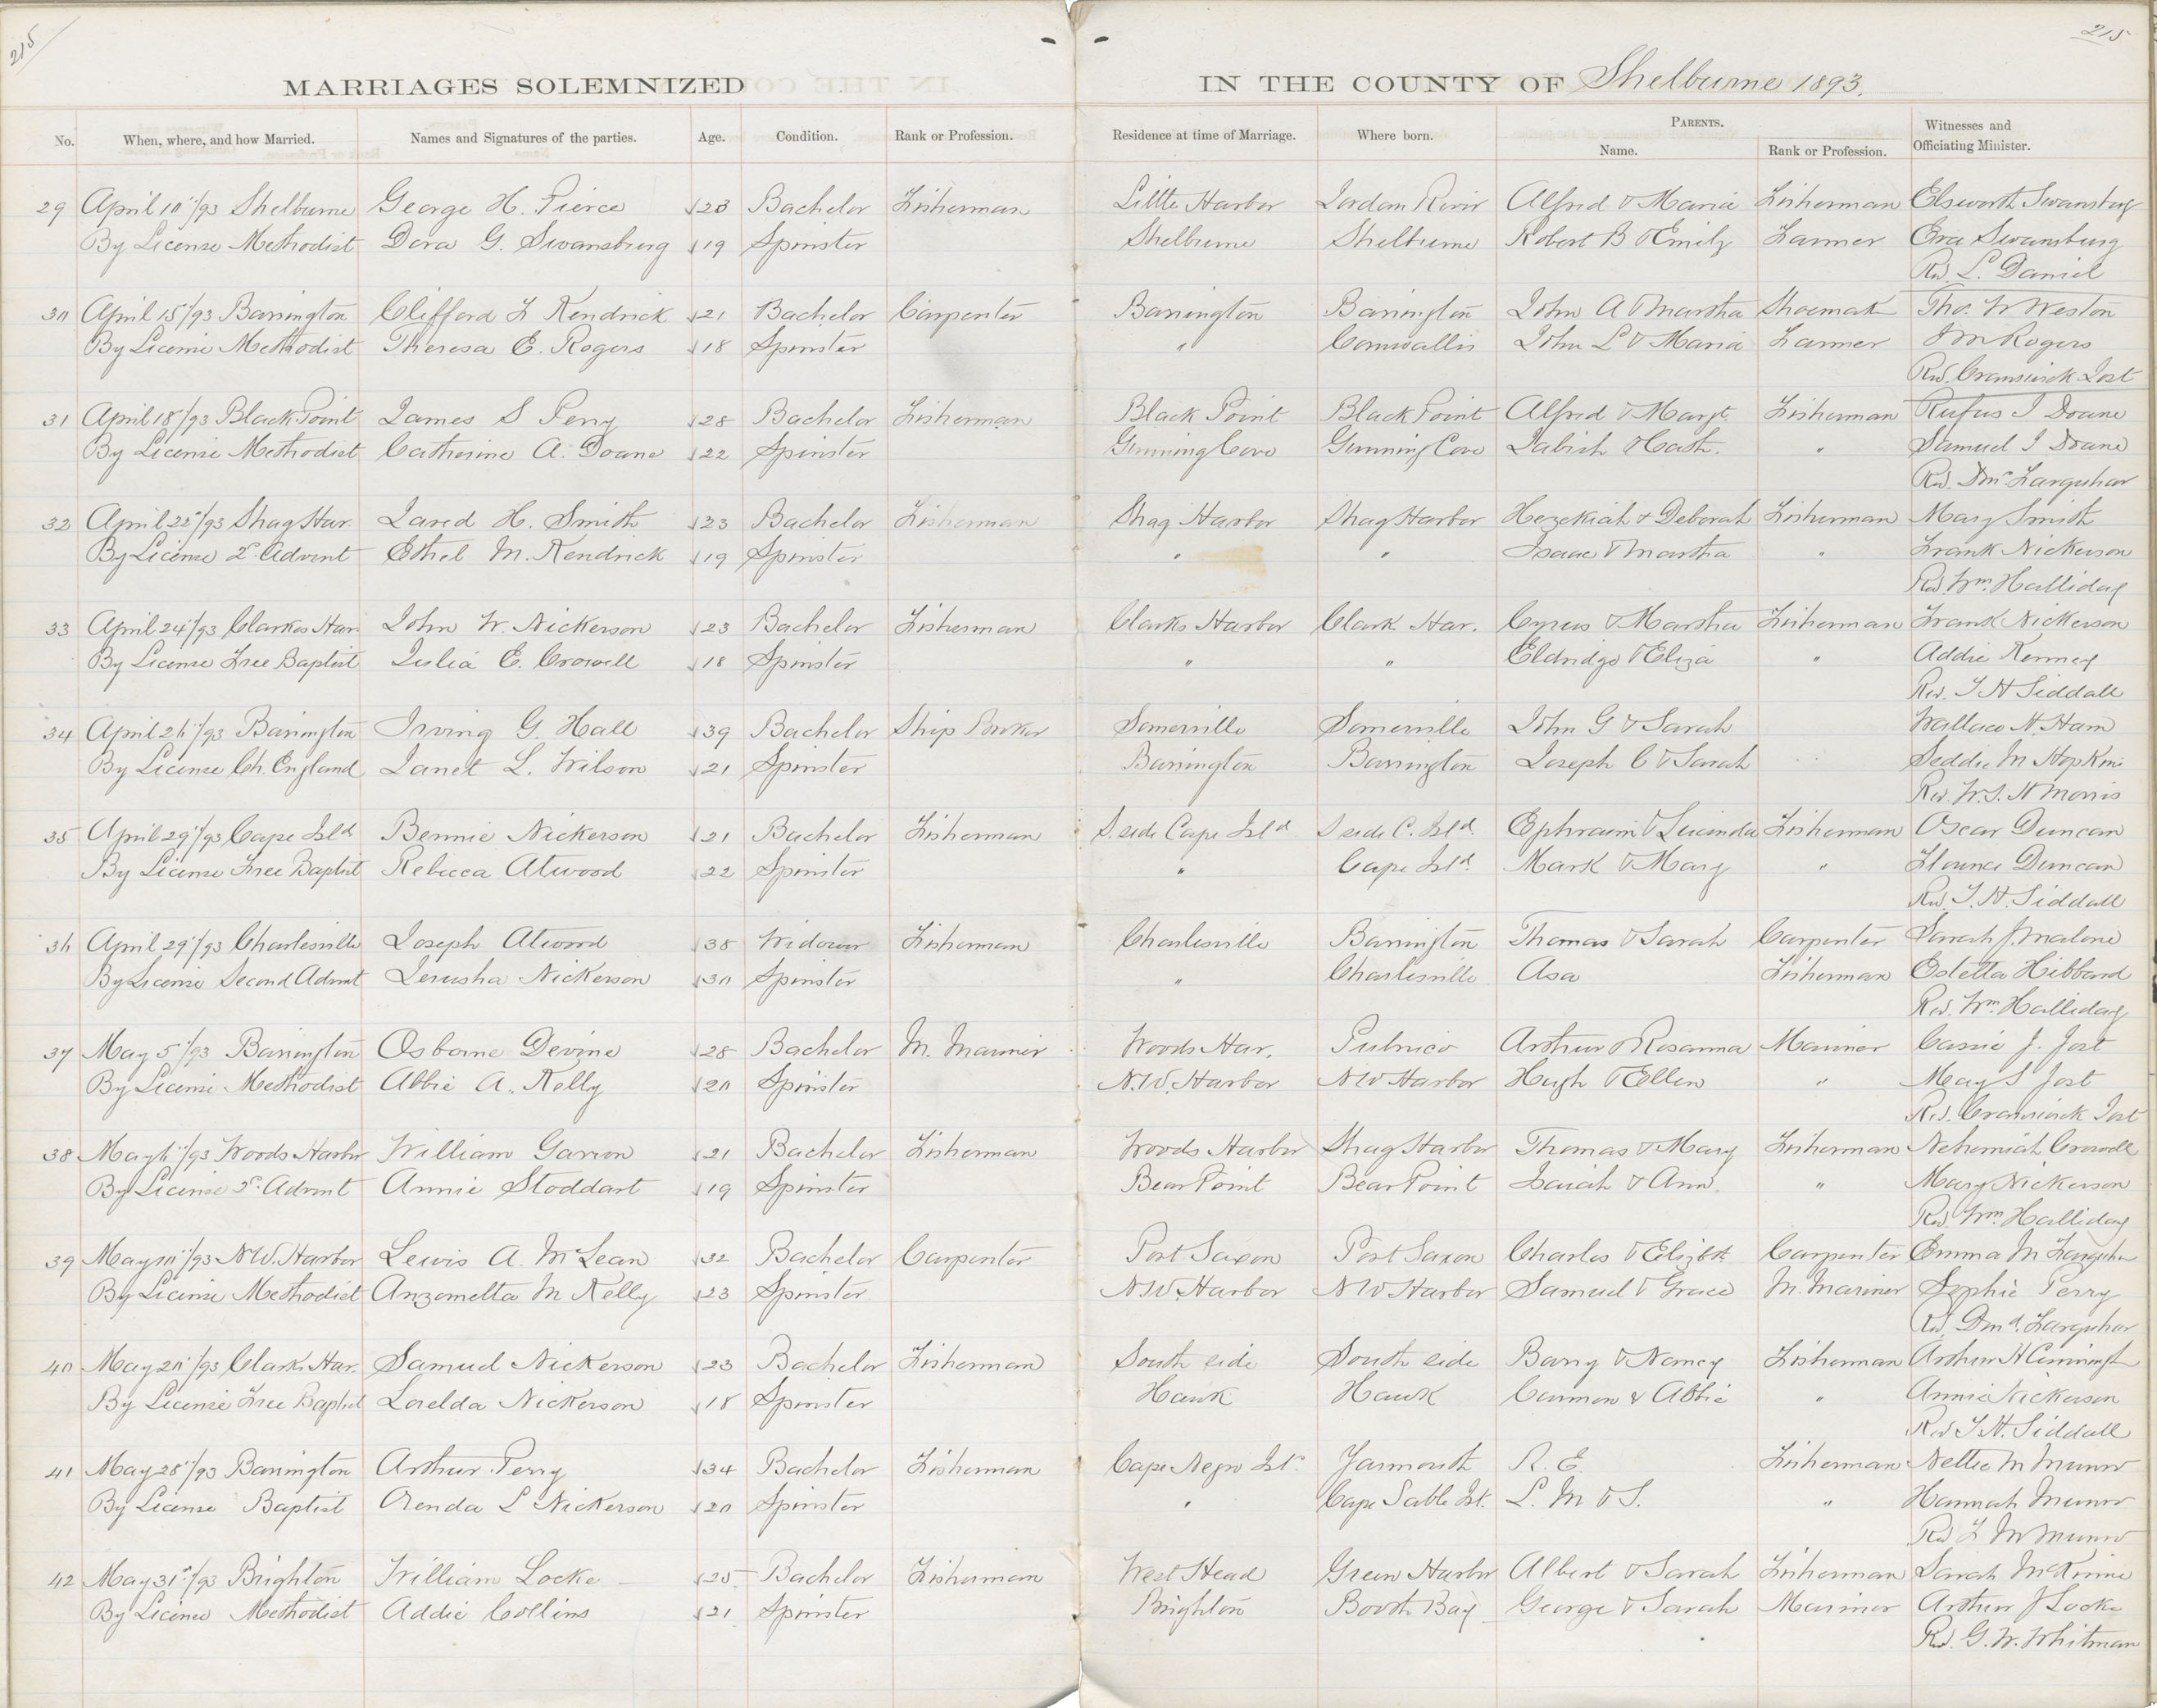 215
215
MARRIAGES SOLEMNIZED IN THE COUNTY OF Shelburne 1893.
No. When, where, and how Married. Names and Signatures of the parties. Age. Condition. Rank or Profession. Residence at time of Marriage. Where born. PARENTS. Name. Rank or Profession. Witnesses and Officiating Minister.
29 April 10"/93 Shelburne George H. Pierce 23 Bachelor Fisherman Little Harbor Jordan River Alfred & Maria Fisherman Elsworth Swansburg
By License Methodist Dora G. Swansburg 19 Spinster Shelburne Shelburne Robert B & Emily Farmer Eva Swansburg
Rev L. Daniel
30 April 15"/93 Barrington Clifford F Kendrick 21 Bachelor Carpenter Barrington Barrington John A & Martha Shoemak Tho. W Weston
By License Methodist Theresa E. Rogers 18 Spinster " Cornwallis John L & Maria Farmer J M Rogers
Rev. Cranswick Jost
31 April 18"/93 Black Point James S Perry 28 Bachelor Fisherman Black Point Black Point Alfred & Margt. Fisherman Rufus I Doane
By License Methodist Catherine A. Doane 22 Spinster Gunning Cove Gunning Cove & Cath. " Samuel I Doane
Rev. Farquhar
32 April 22"/93 Shag Har. Jared H. Smith 23 Bachelor Fisherman Shag Harbor Shag Harbor Hezekiah & Deborah Fisherman Mary Smith
By License 2d. Advent Ethel M. Kendrick 19 Spinster " " Isaac & Martha " Frank Nickerson
Rev. Wm. Halliday
33 April 24"/93 Clarkes Har. John W. Nickerson 23 Bachelor Fisherman Clarks Harbor Clark Har. Cyrus & Martha Fisherman Frank Nickerson
By License Free Baptist Julia E. Crowell 18 Spinster " " Eldridge & Eliza " Addie Kenney
Rev. T H Siddall
34 April 26"/93 Barrington Irving G. Hall 39 Bachelor Ship Broker Somerville Somerville John G & Sarah Wallace N. Ham
By License Ch. England Janet L. Wilson 21 Spinster Barrington Barrington Joseph C & Sarah Seddie M Hopkins
Rev. W. S. H Morris
35 April 29"/93 Cape Isld Bennie Nickerson 21 Bachelor Fisherman S. side Cape Isld S side C. Isld. Ephraim & Lucinda Fisherman Oscar Duncan
By License Free Baptist Rebecca Atwood 22 Spinster " Cape Isld. Mark & Mary " Florence Duncan
Rev. T. H. Siddall
36 April 29"/93 Charlesville Joseph Atwood 38 Widower Fisherman Charlesville Barrington Thomas & Sarah Carpenter Sarah J. Malone
By License Second Advent Jerusha Nickerson 30 Spinster " Charlesville Asa Fisherman Estella Hibbard
Rev. Wm. Halliday
37 May 5"/93 Barrington Osborne Devine 28 Bachelor M. Mariner Woods Har. Pubnico Arthur & Rosanna Mariner Cassie J. Jost
By License Methodist Abbie A. Kelly 20 Spinster N.W. Harbor NW Harbor Hugh & Ellen " May S Jost
Rev. Cranswick Jost
38 May 6"/93 Woods Harbor William Garron 21 Bachelor Fisherman Woods Harbor Shag Harbor Thomas & Mary Fisherman Nehemiah Crowell
By License 2d. Advent Annie Stoddart 19 Spinster Bear Point Bear Point Isaiah & Ann " Mary Nickerson
Rev. Wm. Halliday
39 May 10"/93 N.W. Harbor Lewis A. McLean 32 Bachelor Carpenter Port Saxon Port Saxon Charles & Elizbth Carpenter Emma M Farquhar
By License Methodist Anzometta M Kelly 23 Spinster N.W. Harbor NW Harbor Samuel & Grace M. Mariner Sophie Perry
Rev. Farquhar
40 May 20"/93 Clarks Har. Samuel Nickerson 23 Bachelor Fisherman South side South side Barry & Nancy Fisherman Arthur H
By License Free Baptist Lorelda Nickerson 18 Spinster Hawk Hawk & Abbie " Annie Nickerson
Rev T. H. Siddall
41 May 28"/93 Barrington Arthur Perry 34 Bachelor Fisherman Cape Negro Isl. Yarmouth R. E. Fisherman Nettie M Munro
By License Baptist Orenda L Nickerson 20 Spinster " Cape Sable Isl. L. M & S. " Hannah Munro
Rev F M Munro
42 May 31st/93 Brighton William Locke 25 Bachelor Fisherman West Head Green Harbor Albert & Sarah Fisherman Sarah McKinnie
By License Methodist Addie Collins 21 Spinster Brighton Booth Bay George & Sarah Mariner Arthur J Locke
Rev. G. W. Whitman